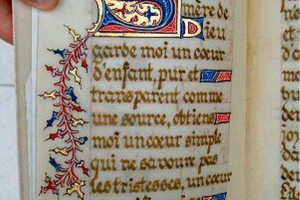 mère de
garde moi un cœur
d'enfant, pur et
transparent comme
une source, obtiens
moi un cœur simple
qui ne savoure pas
les tristesses, un cœur